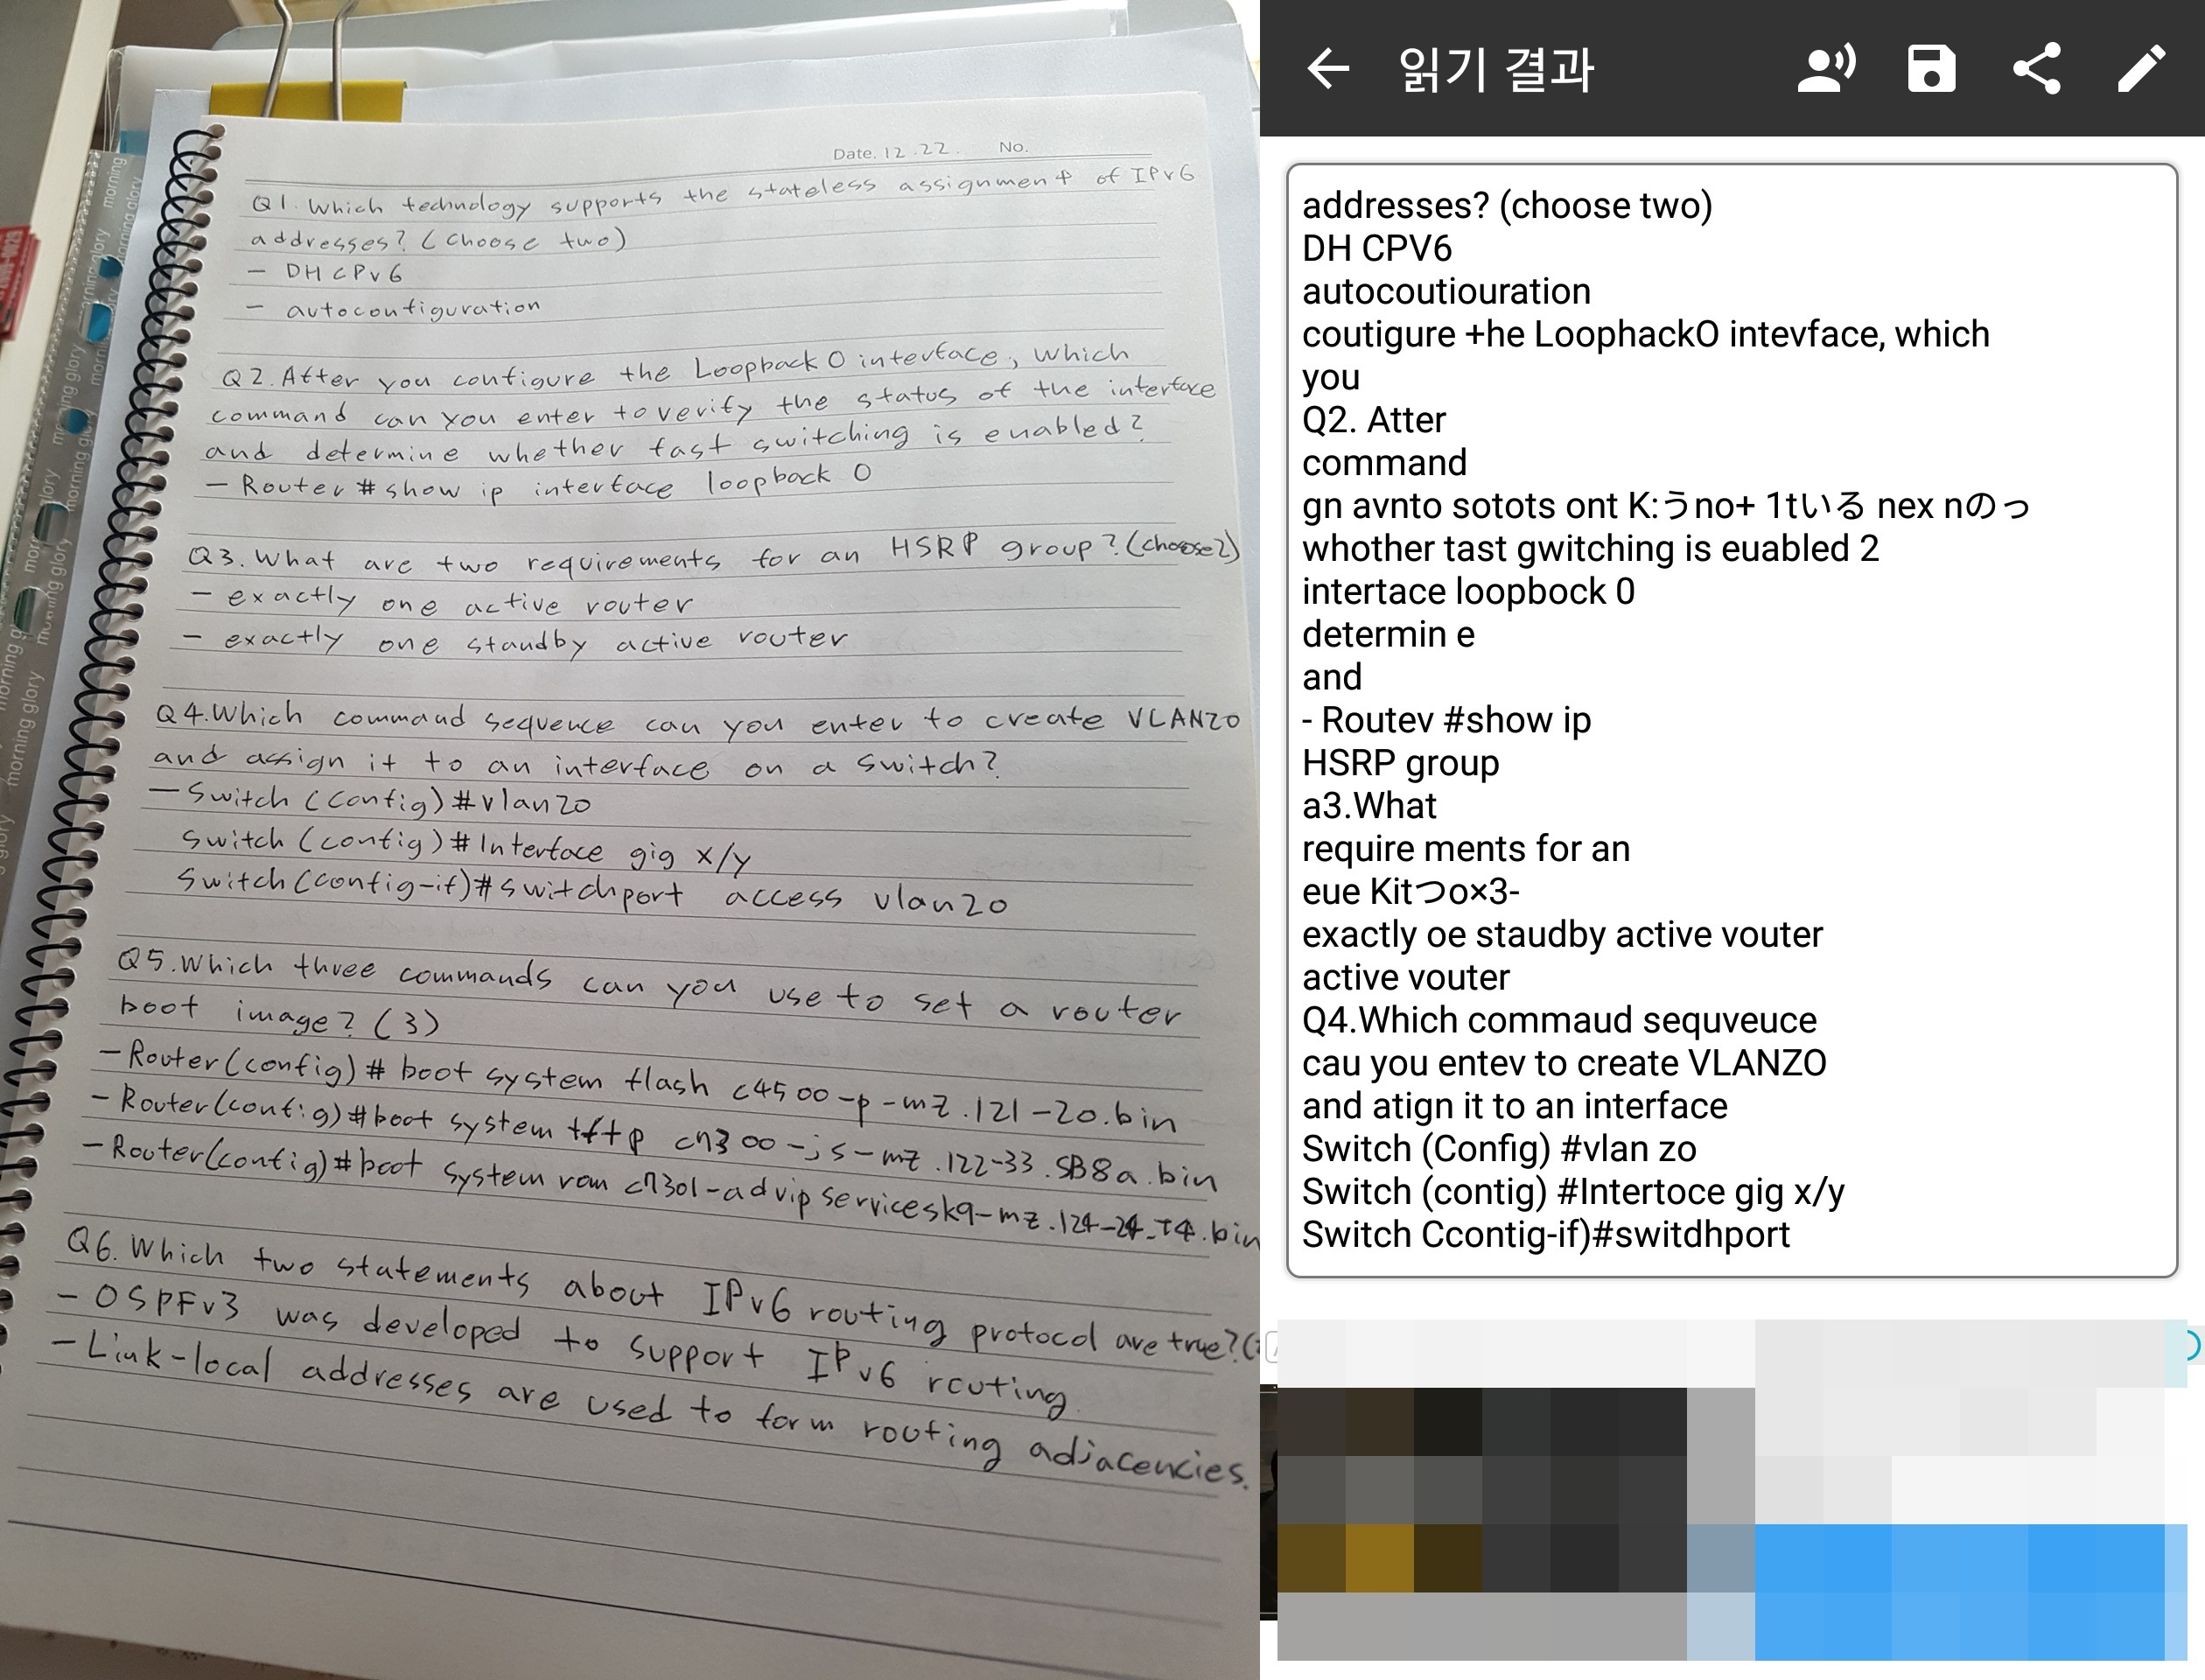 Date. 12.22. No.
Q1. Which technology supports the stateless assignment of IPv6
addresses? (choose two)
- DHCPv6
- autoconfiguration
Q2. After you configure the Loopback 0 interface, which
command can you enter to verify the status of the interface
and determine whether fast switching is enabled?
- Router # show ip interface loopback 0
Q3. What are two requirements for an HSRP group? (choose2)
- exactly one active router
- exactly one standby active router
Q4. Which command sequence can you enter to create VLAN20
and assign it to an interface on a switch?
- Switch (config)#vlan20
switch (config)#Interface gig x/y
Switch (config-if)#switchport access vlan20
Q5. Which three commands can you use to set a router
boot image? (3)
- Router(config)# boot system flash c4500-p-mz.121-20.bin
- Router(config)#boot system tftp c7300-js-mz.122-33.SB8a.bin
- Router(config)#boot system rom c7301-advipservicesk9-mz.124-24.T4.bin
Q6. Which two statements about IPv6 routing protocol are true?
- OSPFv3 was developed to support IPv6 routing.
- Link-local addresses are used to form routing adjacencies.
morning glory
morning glory
읽기 결과
addresses? (choose two)
DH CPV6
autocoutiouration
coutigure +he LoophackO intevface, which
you
Q2. Atter
command
gn avnto sotots ont K:うno+ 1tいる nex nのっ
whother tast gwitching is euabled 2
intertace loopbock 0
determin e
and
- Routev #show ip
HSRP group
a3.What
require ments for an
eue Kitつo×3-
exactly oe staudby active vouter
active vouter
Q4.Which commaud sequveuce
cau you entev to create VLANZO
and atign it to an interface
Switch (Config) #vlan zo
Switch (contig) #Intertoce gig x/y
Switch Ccontig-if)#switdhport